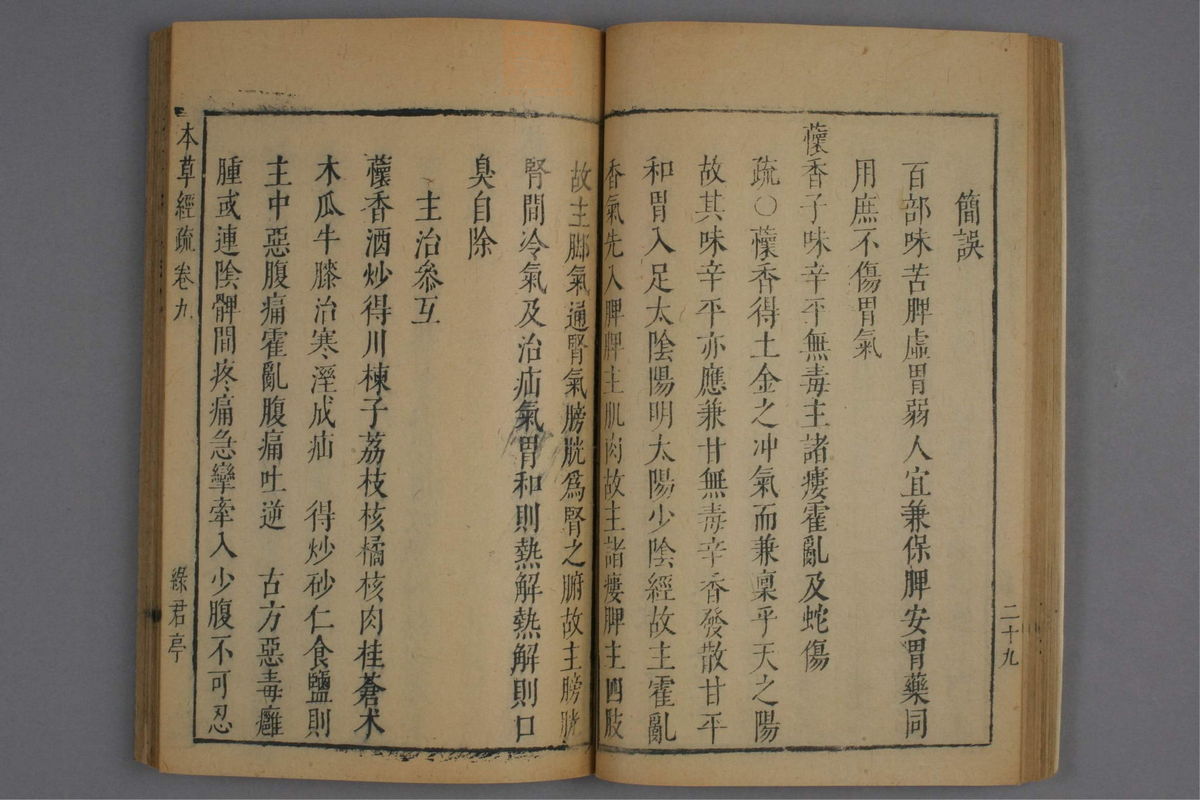 簡誤
百部味苦脾虛胃弱人宜兼保脾安胃藥同
用庶不傷胃氣
蘹香子味辛平無毒主諸瘻霍亂及蛇傷
疏○蘹香得土金之冲氣而兼稟乎天之陽
故其味辛平亦應兼甘無毒辛香發散甘平
和胃入足太陰陽明太陽少陰經故主霍亂
香氣先入脾脾主肌肉故主諸瘻脾主四肢
二十九
故主腳氣通腎氣膀胱爲腎之腑故主膀胱
腎間冷氣及治疝氣胃和則熱解熱解則口
臭自除
主治參互
蘹香酒炒得川楝子荔枝核橘核肉桂蒼术
木瓜牛膝治寒溼成疝 得炒砂仁食鹽則
主中惡腹痛霍亂腹痛吐逆 古方惡毒癰
腫或連陰髀間疼痛急攣牽入少腹不可忍
本草經疏 卷九
綠君亭